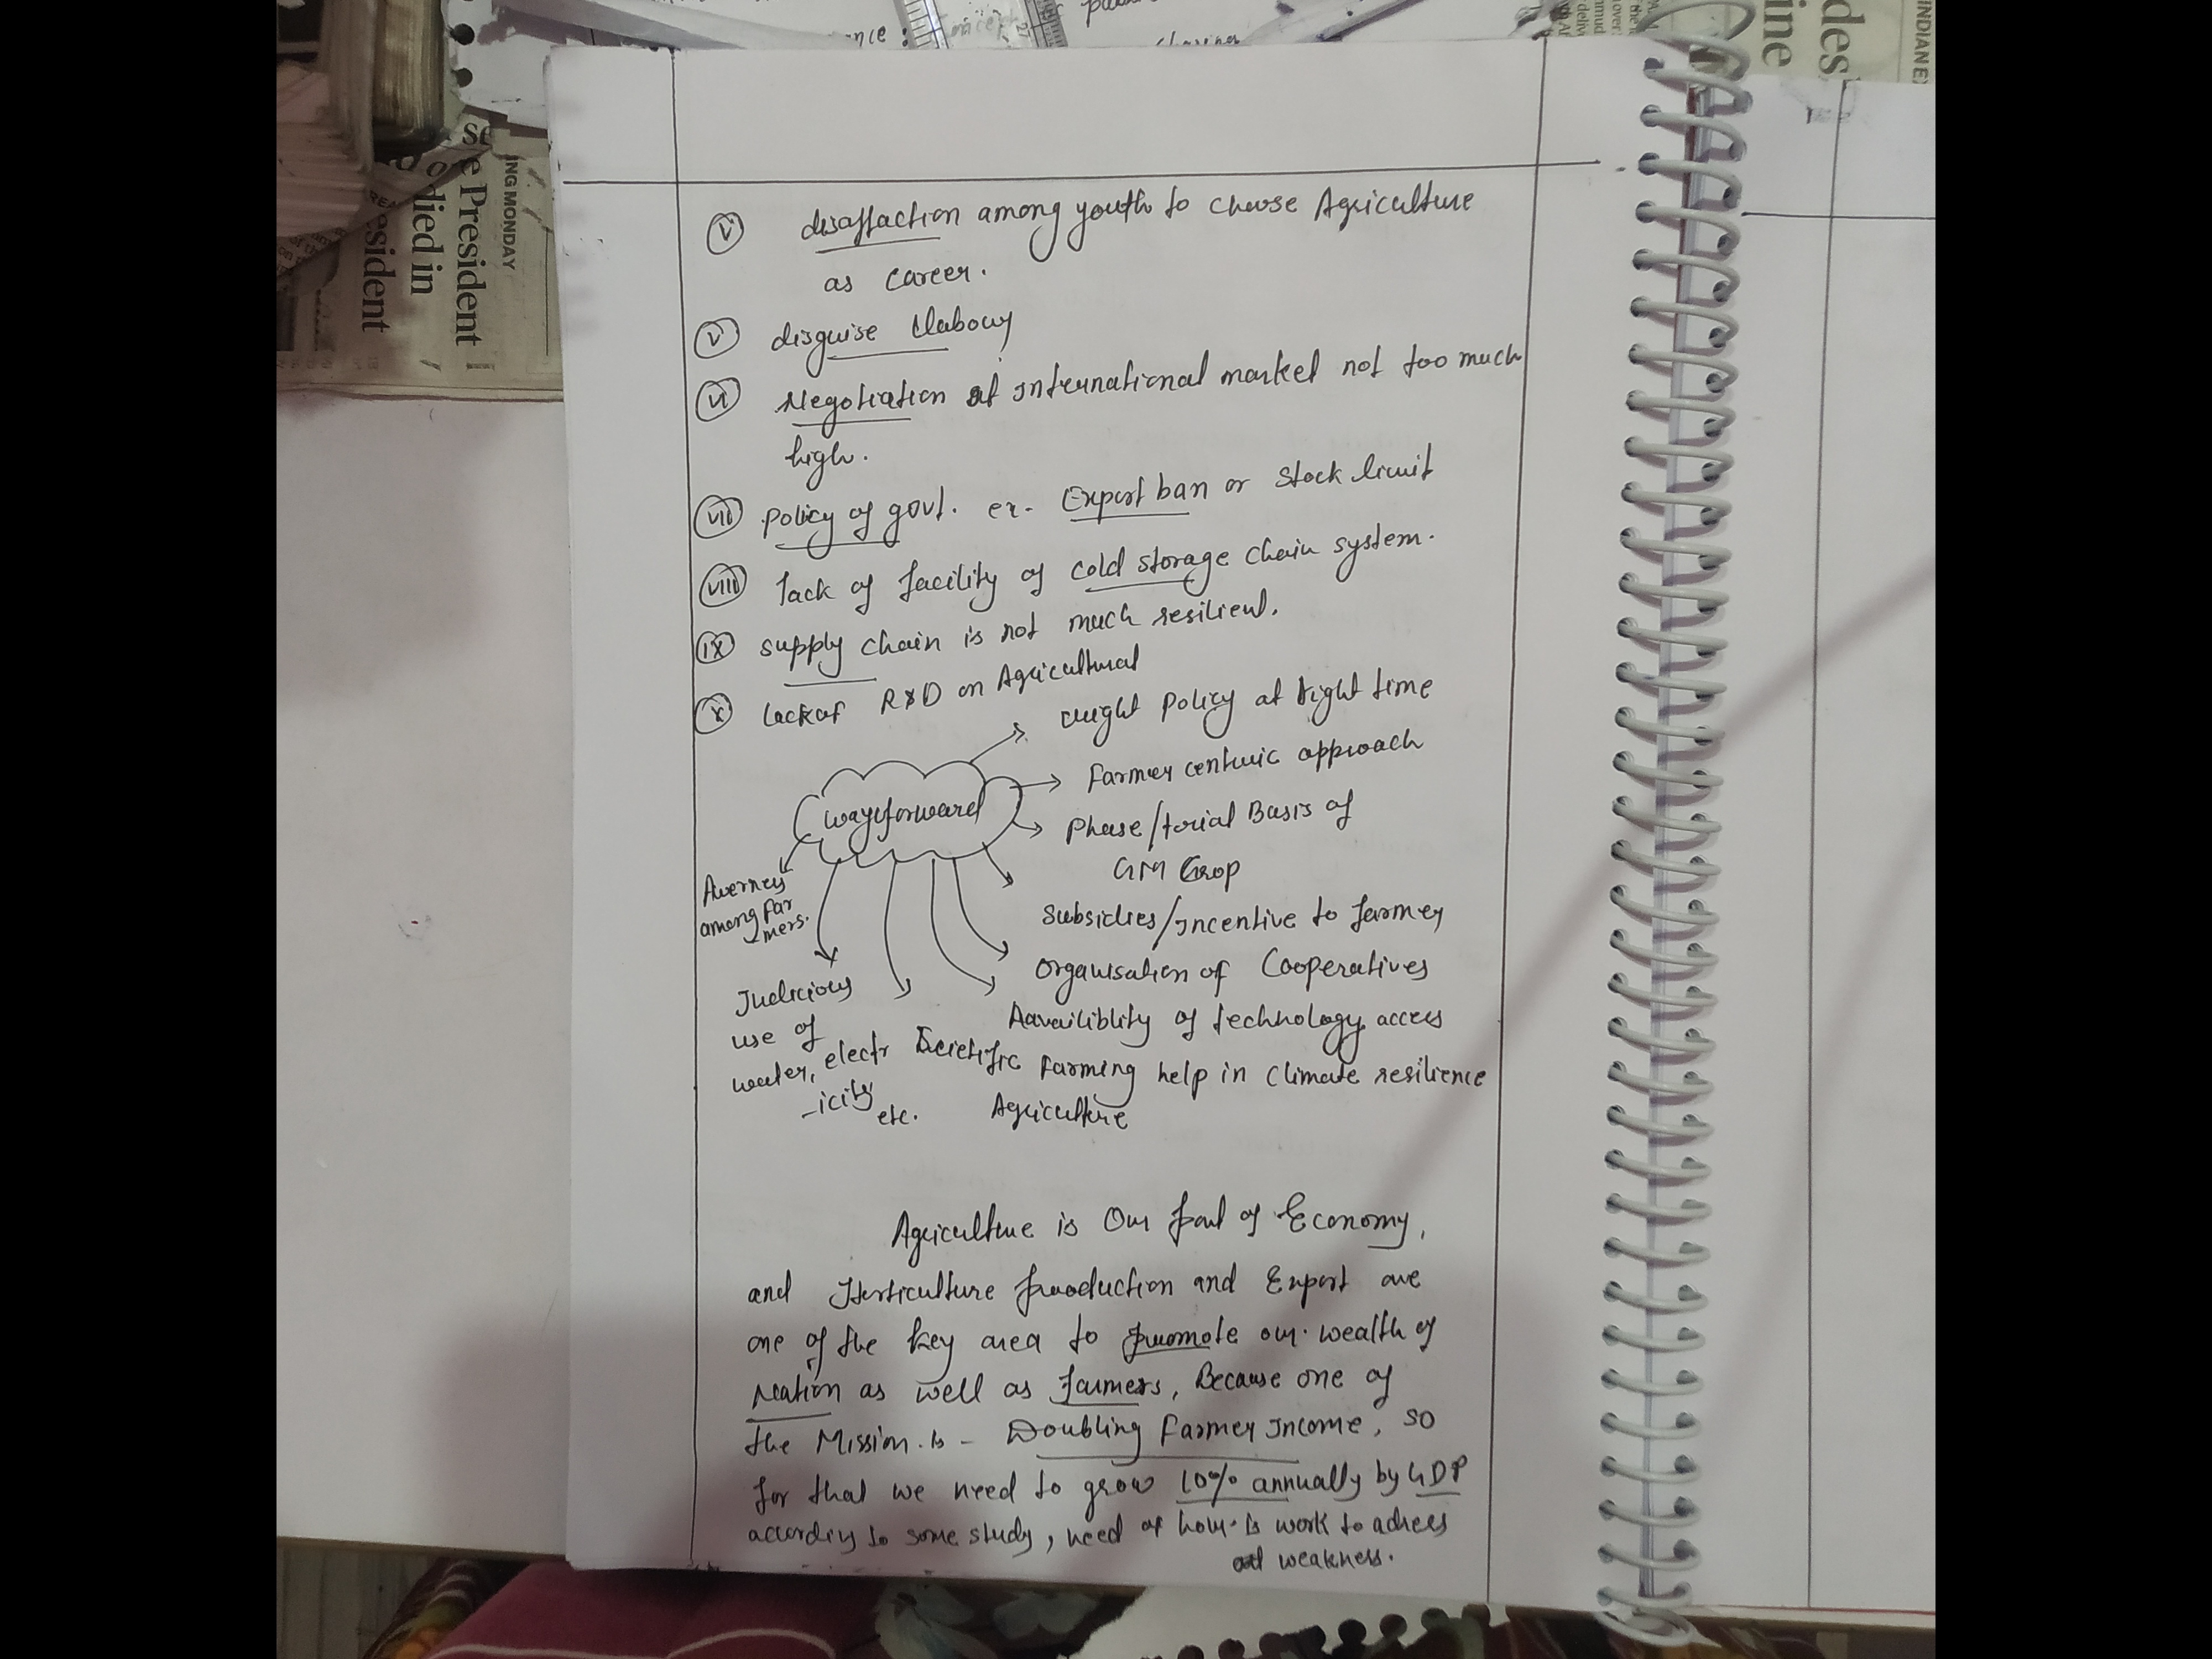 ⓥ disaffaction among youth to choose Agriculture
as career.
ⓥ disguise labour
ⓥⓘ Negotiation at international market not too much
high.
vii Policy of govt. ex- Export ban or Stock limit
viii lack of facility of cold storage chain system.
ix supply chain is not much resilient.
x lack of R&D on Agricultural
wayforward
right Policy at right time
Farmer centric approach
Phase/trial Basis of
GM Crop
Subsidies/Incentive to farmer
Organisation of Cooperatives
Aavailiblity of technology access
Scietific Farming help in climate resilience
Agriculture
Awerness
among far
-mers.
Judicious
use of
water, electr
-icity
etc.
Agriculture is our part of Economy,
and Horticulture production and Export are
one of the key area to promote our wealth of
Nation as well as farmers, Because one of
the Mission is - Doubling Farmer Income, so
for that we need to grow 10% annually by GDP
according to some study, need of hour is work to adress
weakness.
nce :
des'
ine
INDIAN E
ING MONDAY
e President
died in
esident